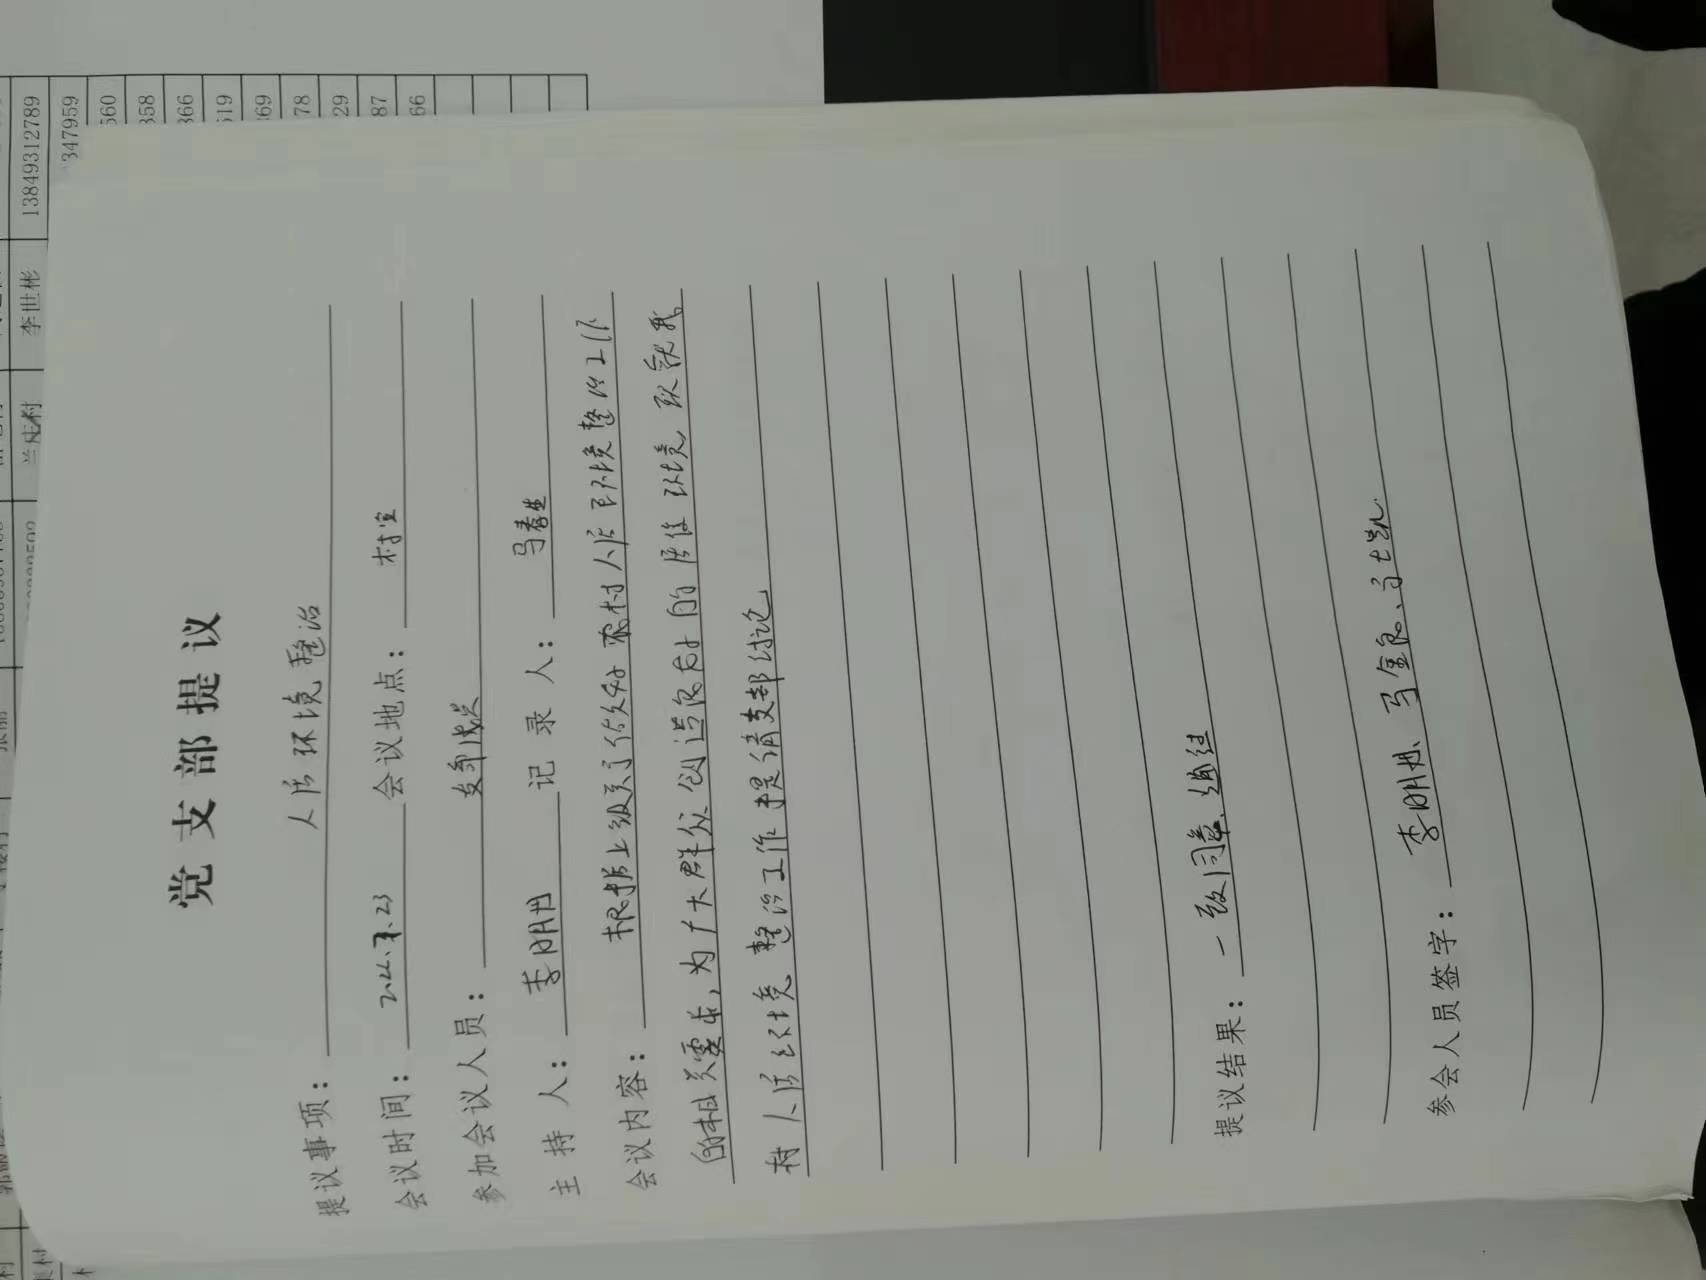 党支部提议
提议事项：人居环境整治
会议时间：2022.7.23 会议地点：村室
参加会议人员：支部成员
主持人：李明丑 记录人：马春生
会议内容：根据上级关于做好农村人居环境整治工作
的相关要求，为广大群众创造良好的居住环境 现就我
村人居环境整治工作提请支部讨论
提议结果：一致同意、通过
参会人员签字：李明丑、马金良、
13849312789
李世彬
347959
560
358
366
519
369
78
29
87
66